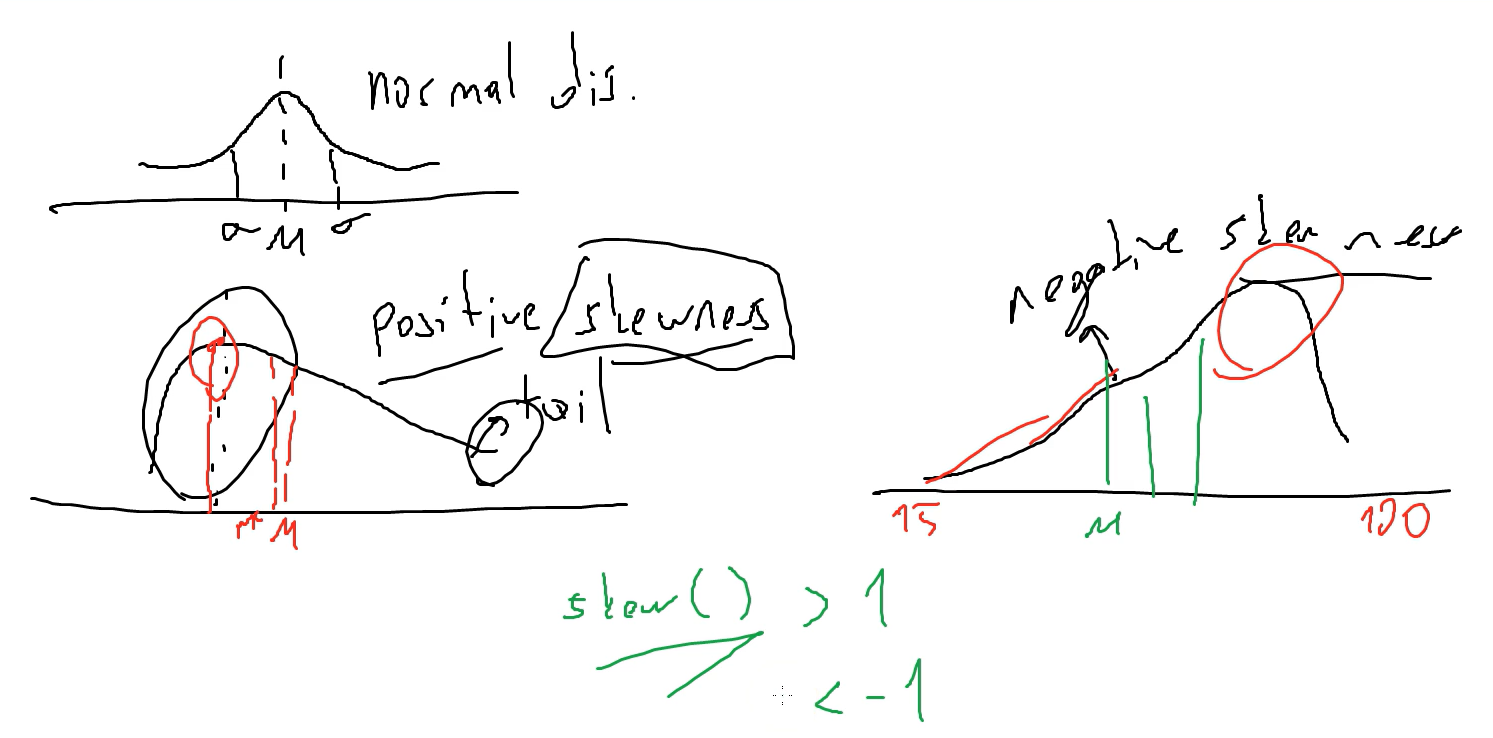 normal dis.
σ μ σ
positive skewness
tail
μ
negative skewness
15
μ
100
skew() > 1
< -1